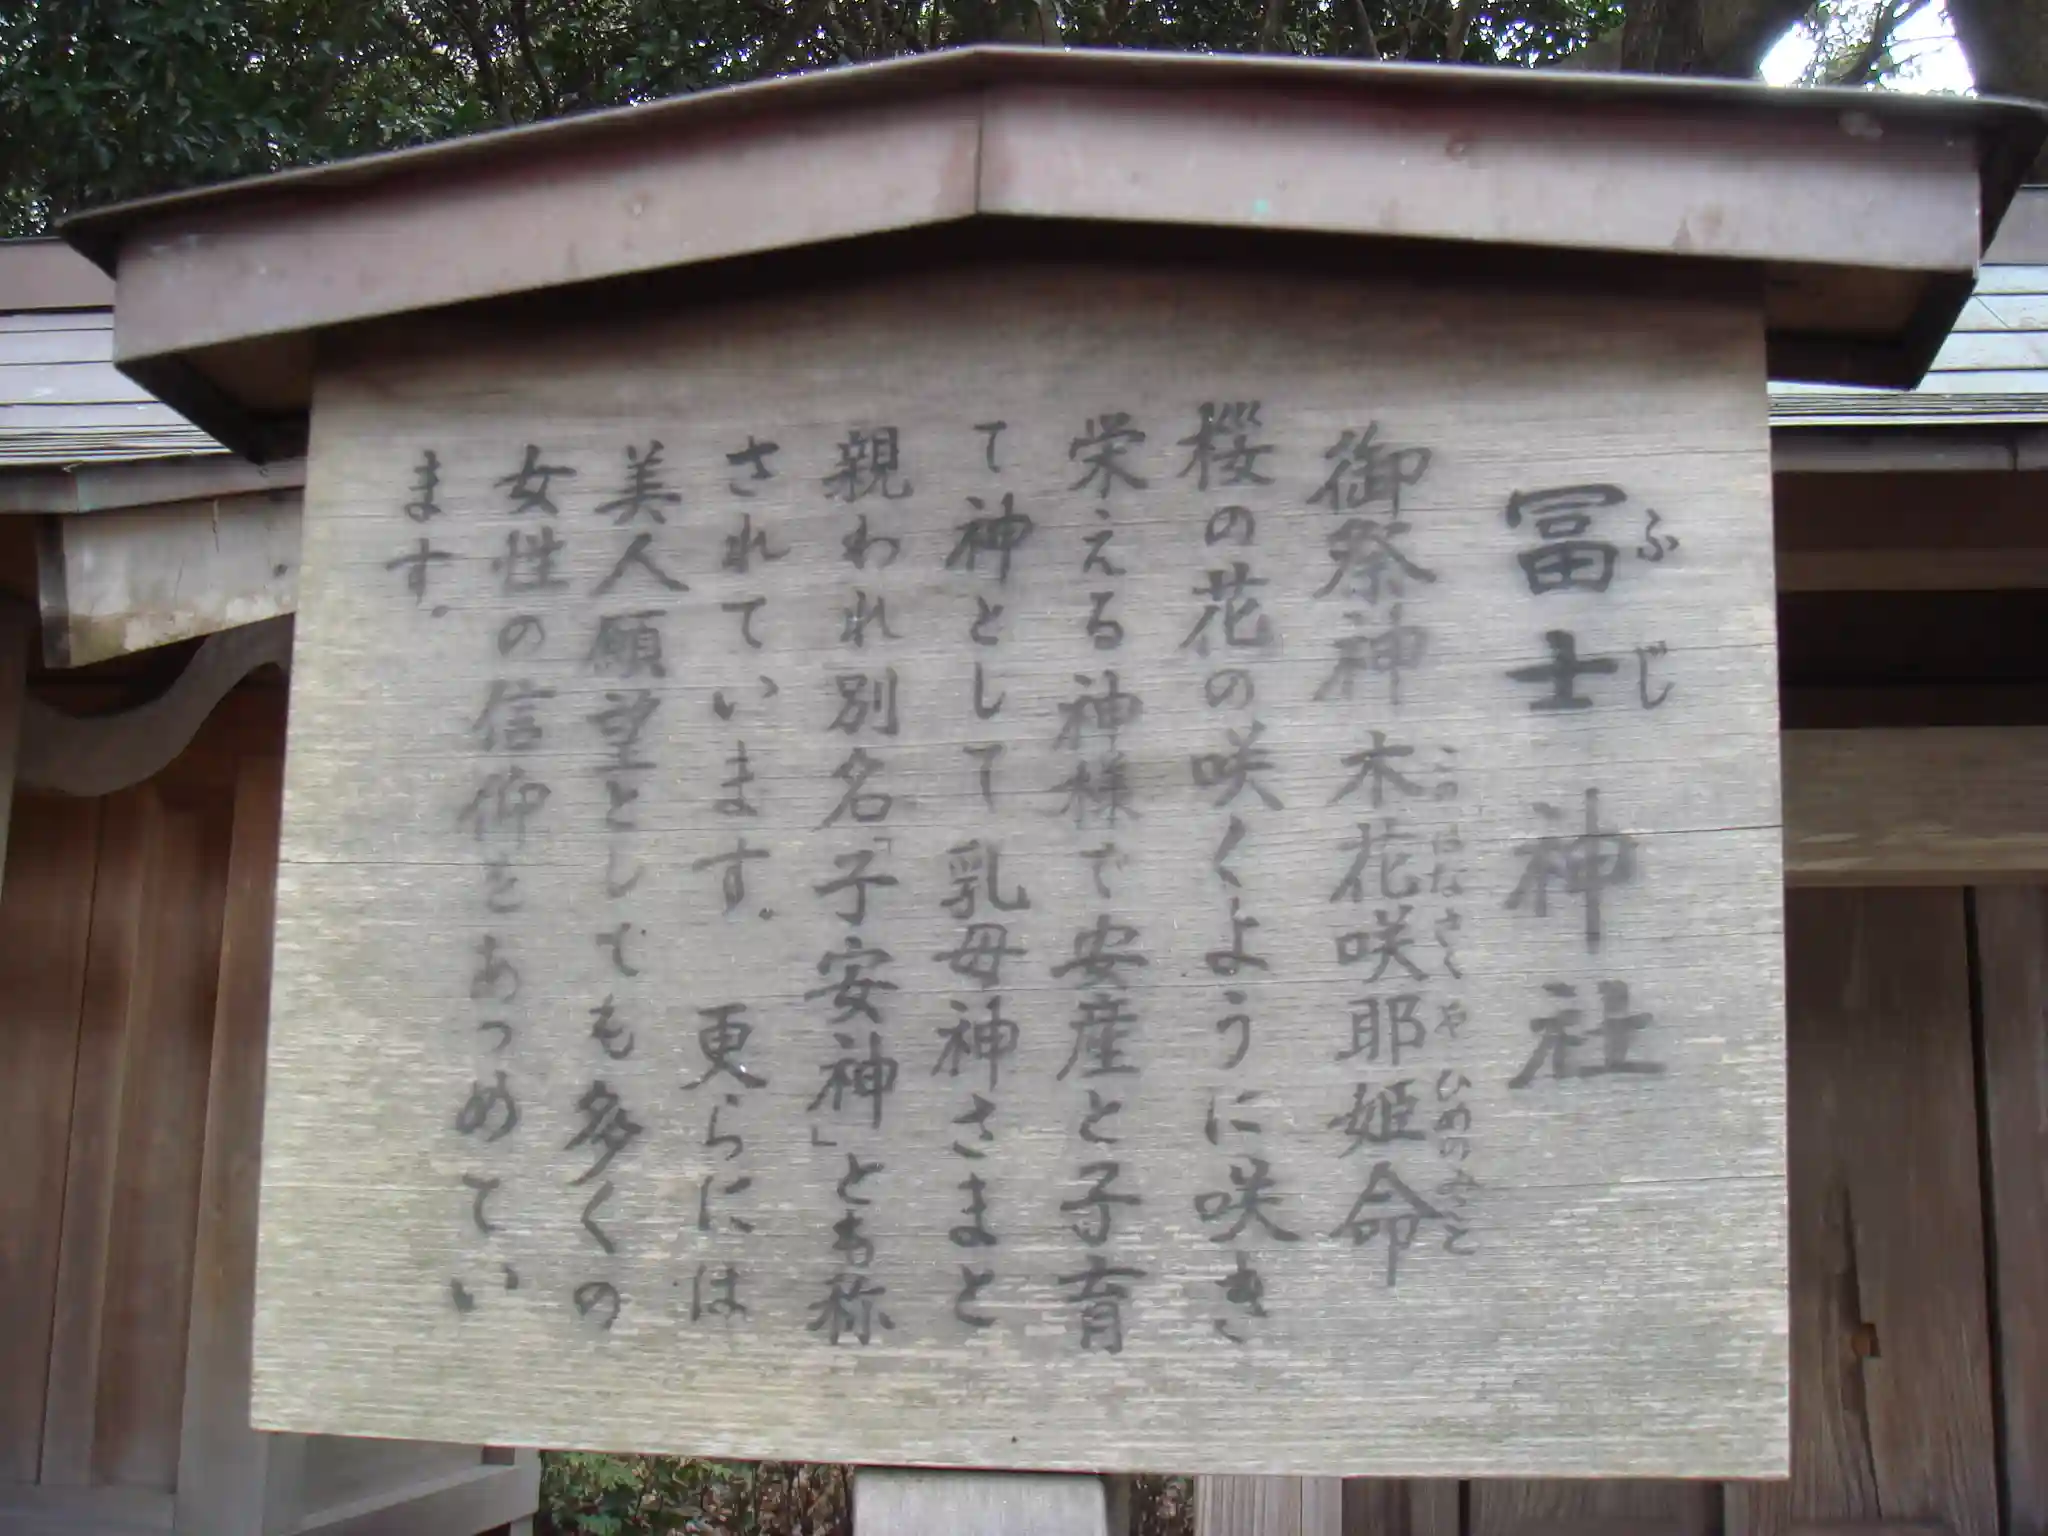 冨士神社
ふじ
御祭神 木花咲耶姫命
このはなさくやひめのみこと
桜の花の咲くように咲き
栄える神様で安産と子育
て神として乳母神さまと
親われ別名「子安神」とも称
されています。 更らには
美人願望としても多くの
女性の信仰をあつめてい
ます。